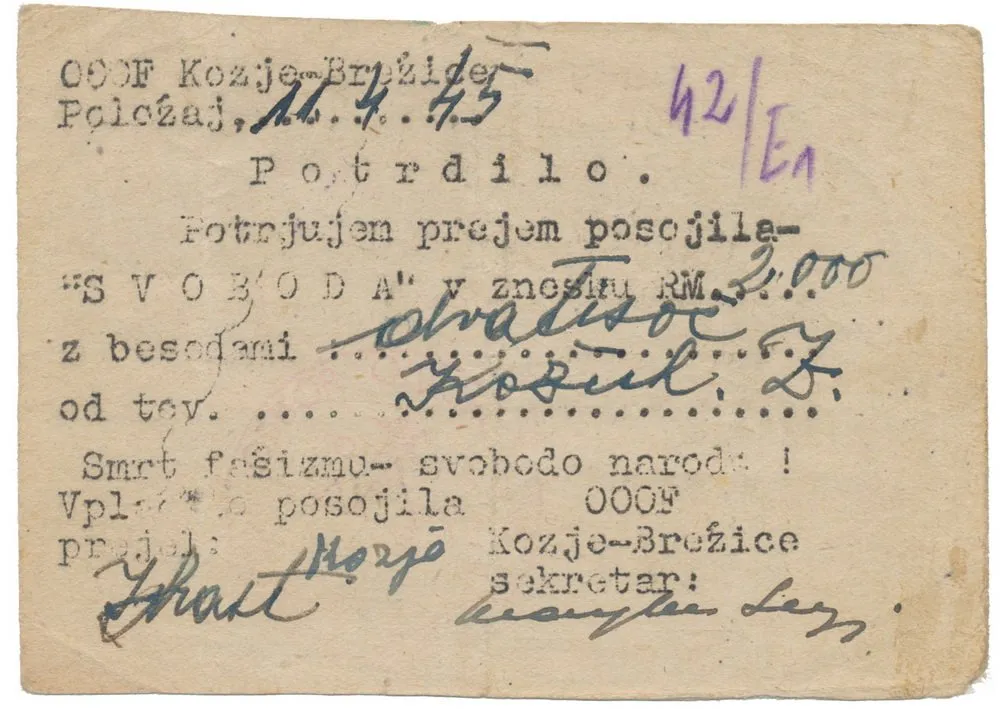 OOOF Kozje-Brežice
Položaj, 11. 4. 45
42/E1
Potrdilo.
Potrjujem prejem posojila-
"SVOBODA" v znesku RM. 2.000
z besedami dvatisoč
od tov. Kožuh. I.
Smrt fašizmu- svobodo narodu !
Vplačilo posojila OOOF
prejel: Kozje Kozje-Brežice
sekretar: